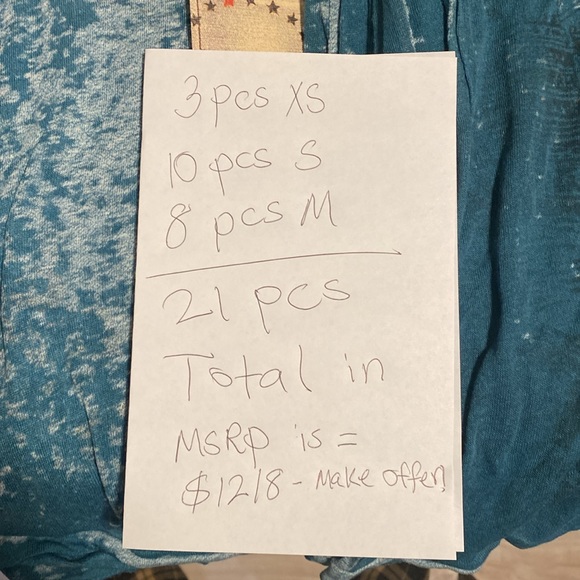 3 pcs XS
10 pcs S
8 pcs M
21 pcs
Total in
MSRP is =
$1218 - Make offer!